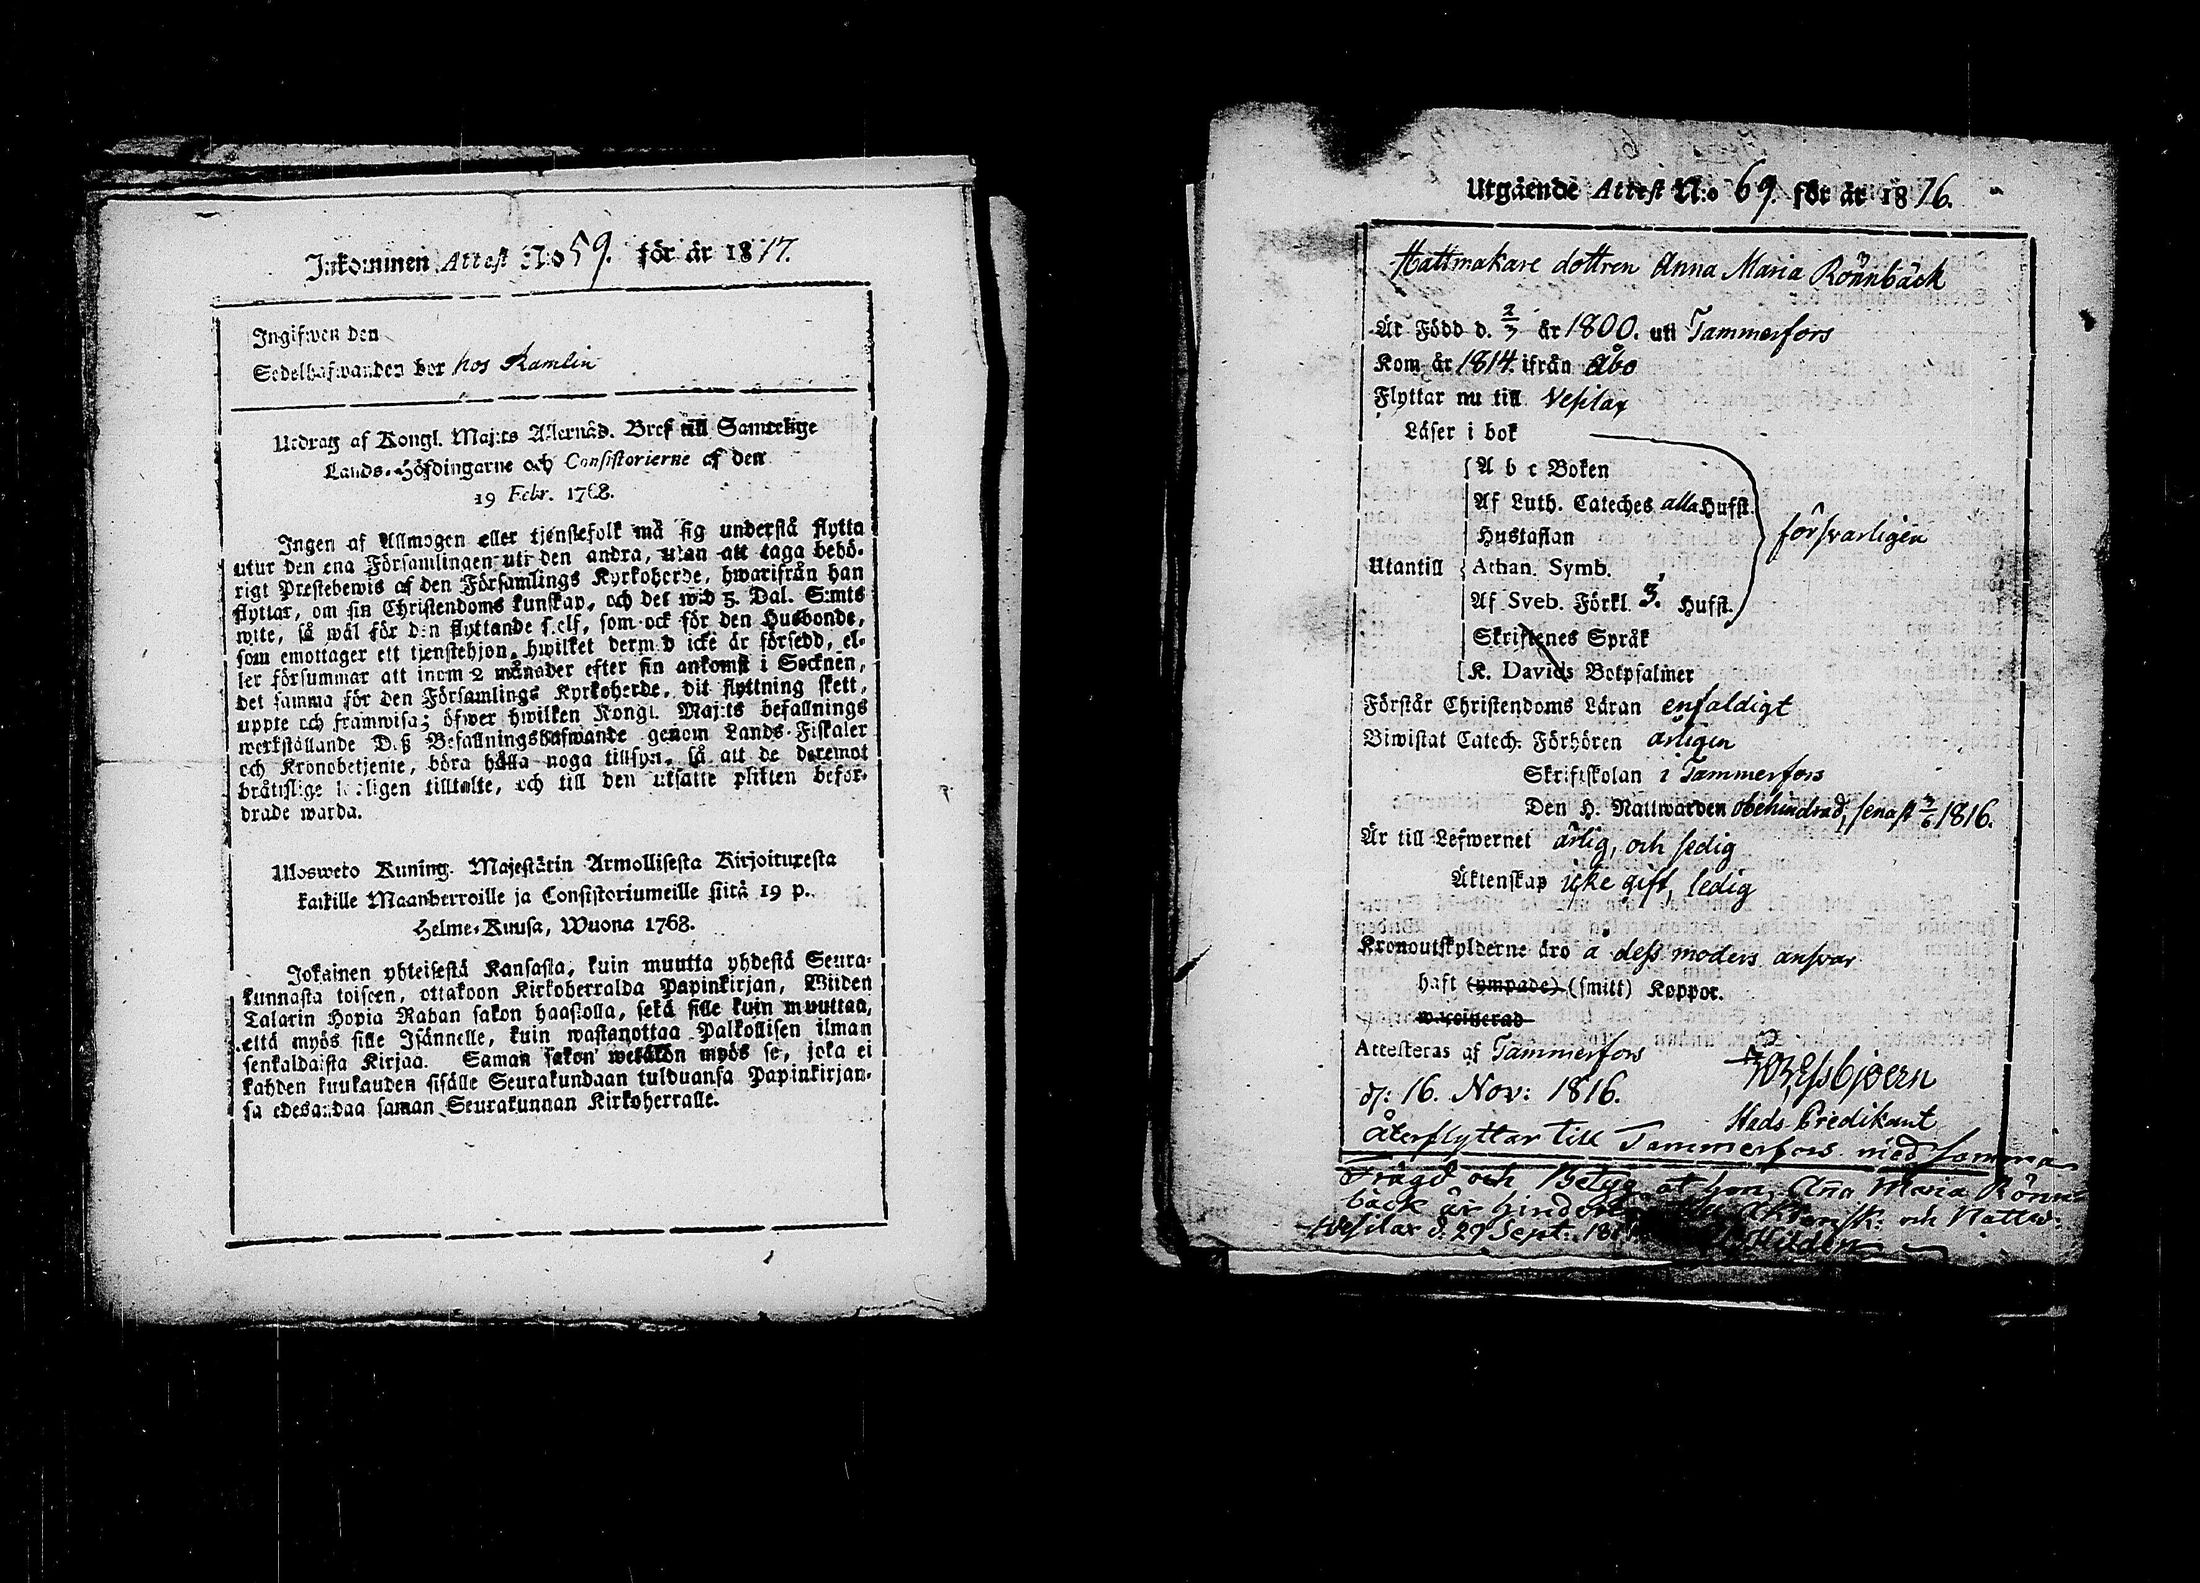 Inkommen Attest No 59. för år 1817.
Ingifwen den
Sedelhafwanden bor hos Ramlin
Utdrag af Kongl. Maj:ts Allernåd. Bref till Samtelige
Lands-Höfdingarne och Consistorierne af den
19 Febr. 1768.
Ingen af Allmogen eller tjenstefolk må sig understå flytta
utur den ena Församlingen uti den andra, utan att taga behö-
rigt Prestebewis af den Församlings Kyrkoherde, hwarifrån han
flyttar, om sin Christendoms kunskap, och det wid 5. Dal. S:mts
wite, så wäl för den flyttande sjelf, som ock för den Husbonde,
som emottager ett tjenstehjon, hwilket dermed icke är försedd, el-
ler försummar att inom 2 månader efter sin ankomst i Socknen,
det samma för den Församlings Kyrkoherde, dit flyttning skett,
uppte och framwisa; öfwer hwilken Kongl. Maj:ts befallnings
werkställande Deß Befallningshafwande genom Lands-Fiskaler
och Kronobetjente, böra hålla noga tillsyn, så att de deremot
bråttslige lagligen tilltalte, och till den utsatte plikten beför-
drade warda.
Ulosweto Kuning. Majestätin Armollisesta Kirjoituxesta
kaikille Maanherroille ja Consistoriumeille siitä 19 p.
Helme-Kuusa, Wuona 1768.
Jokainen yhteisestä Kansasta, kuin muutta yhdestä Seura-
kunnasta toiseen, ottakoon Kirkoherralda Papinkirjan, Wiiden
Talarin Hopia Rahan sakon haastolla, sekä sille kuin muuttaa,
että myös sille Isännelle, kuin wastanottaa Palkollisen ilman
senkaldaista Kirjaa. Saman sakon wetäkön myös se, joka ei
kahden kuukauden sisälle Seurakundaan tulduansa Papinkirjan-
sa edesandaa saman Seurakunnan Kirkoherralle.
Utgående Attest N:o 69. för år 1816.
Hattmakare dottren Anna Maria Rönnbäck
Är Född d. 2/3 år 1800. uti Tammerfors
Kom år 1814. ifrån Åbo
Flyttar nu till Vesilax
Läser i bok
A b c Boken
Af Luth. Cateches alla Hufst.
Hustaflan
försvarligen
Utantill Athan. Symb.
Af Sveb. Förkl. 3. Hufst.
Skriftenes Språk
K. Davids Botpsalmer
Förstår Christendoms Läran enfaldigt
Biwistat Catech. Förhören årligen
Skriftskolan i Tammerfors
Den H. Nattwarden obehindrad, senast 3/6 1816.
Är till Lefwernet ärlig, och sedig
Äktenskap icke gift, ledig
Kronoutskylderne äro å dess moders ansvar
haft (ympade) (smitt) Koppor.
waccinerad
Attesteras af Tammerfors
d: 16. Nov: 1816.
Essbjoern
Stads Predikant
Återflyttar till Tammerfors med samma
Frägd och Betyg at hon, Anna Maria Rönn-
bäck är och Nattw.
Wesilax d. 29 Sept. Hildén